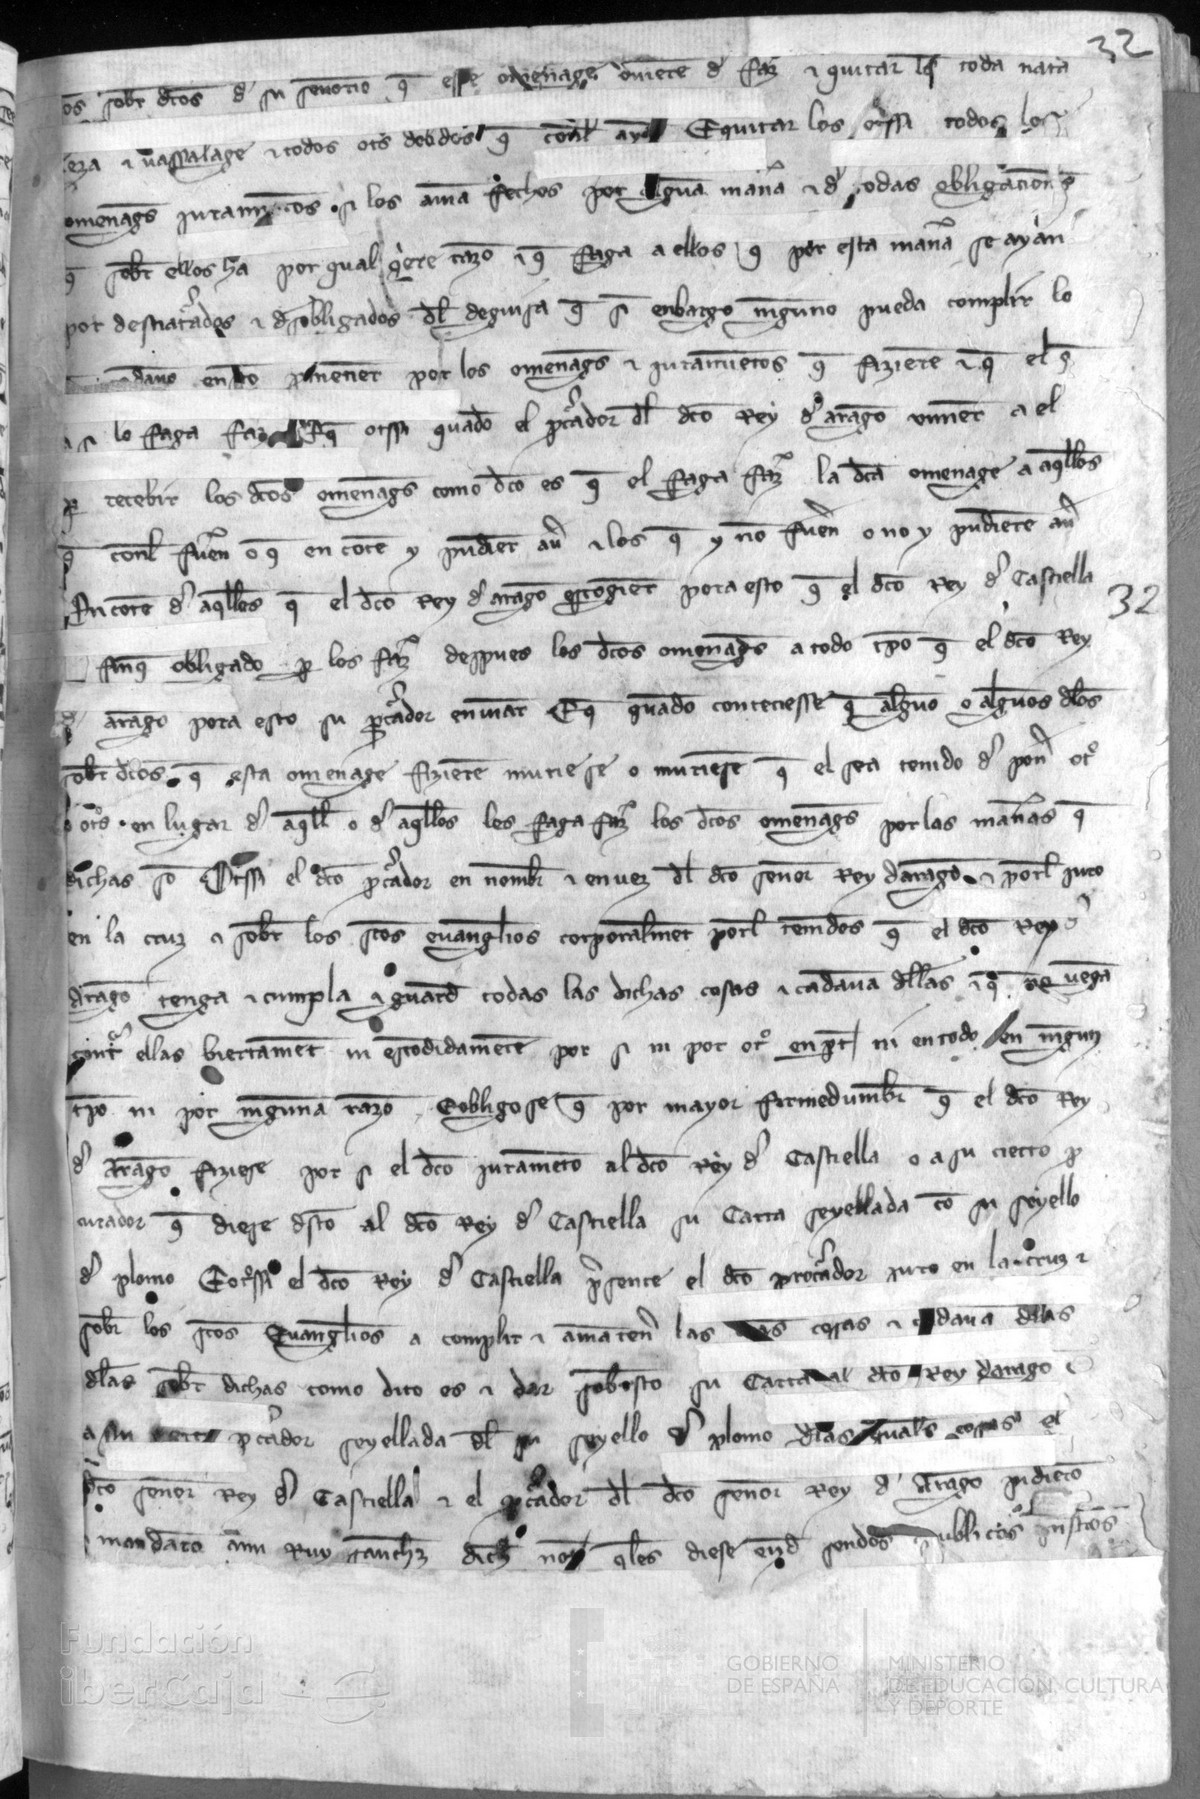 32
os sobr dcos d su senorio q esse omenage ouiere d faz & quitar les toda natu
eza & uassalage & todos otros debdos q conl aya E quitar los otrossi todos los
omenages iuramentos si los ama feches por alguna mana & d todas obligaciones
q sobr ellos ha por qual qere razo & q faga a ellos q por esta manera se ayan
por desnatados & desobligados dl deguisa q si enbargo ninguno pueda complir lo
en to por los omenages & iuramentos q fiziere & q el
assi lo faga faz E q otssi quado el pcador dl dco Rey d arago uiniere a el
pr recebir los dcos omenages como dco es q el faga faz la dca omenage a aqllos
q conl fuen o q en corte y pudier auer & los q y no fuen o no y pudiere auer
En corte d aqllos q el dco Rey d arago escogier pora esto q el dco Rey d Castiella
32
finq obligado pr los faz despues los dcos omenages a todo tpo q el dco Rey
d arago pora esto su pcador enuiar E q quado conteciesse q alguno o algunos dlos
sobr dcos q esta omenage fiziere muriese o muriesen q el sea tenido d pon otr
o otrs en lugar d aqll o d aqllos les faga faz los dcos omenages por las maneras q
dichas so Otssi el dco pcador en nombr & en uez dl dco senor Rey d arago & porl iuro
en la cruz & sobr los stos euanglios corporalmet porl tenidos q el dco Rey d
arago tenga & cumpla & guard todas las dichas cosas & cadauna dllas & q no uega
contr ellas biertamet ni escodidamente por si ni por otr en pt ni en todo en ningun
tpo ni por ninguna razo E obligose q por mayor firmedumbr q el dco Rey
d Arago fiziese por si el dco iurameto al dco Rey d Castiella o a su cierto p
curador q diese dsto al dco Rey d Castiella su Carta seyellada co su seyello
d plomo E otrssi el dco Rey d Castiella psente el dco procador iuro en la cruz &
sobr los stos Euanglios a complir & amaten las dcas cosas & cadauna dllas
dlas sobr dichas como dito es & dar sobresto su Carta al dco Rey darago o
a su cierto pcador seyellada dl su seyello d plomo dlas quales cosas el
dco senor Rey d Castiella & el pcador dl dco senor Rey d Arago pudiero
mandaro a mi Ruy Sanchz dich not qles diese end sendos publicos instos
Fundación
iberCaja
GOBIERNO
DE ESPAÑA
MINISTERIO
DE EDUCACIÓN, CULTURA
Y DEPORTE